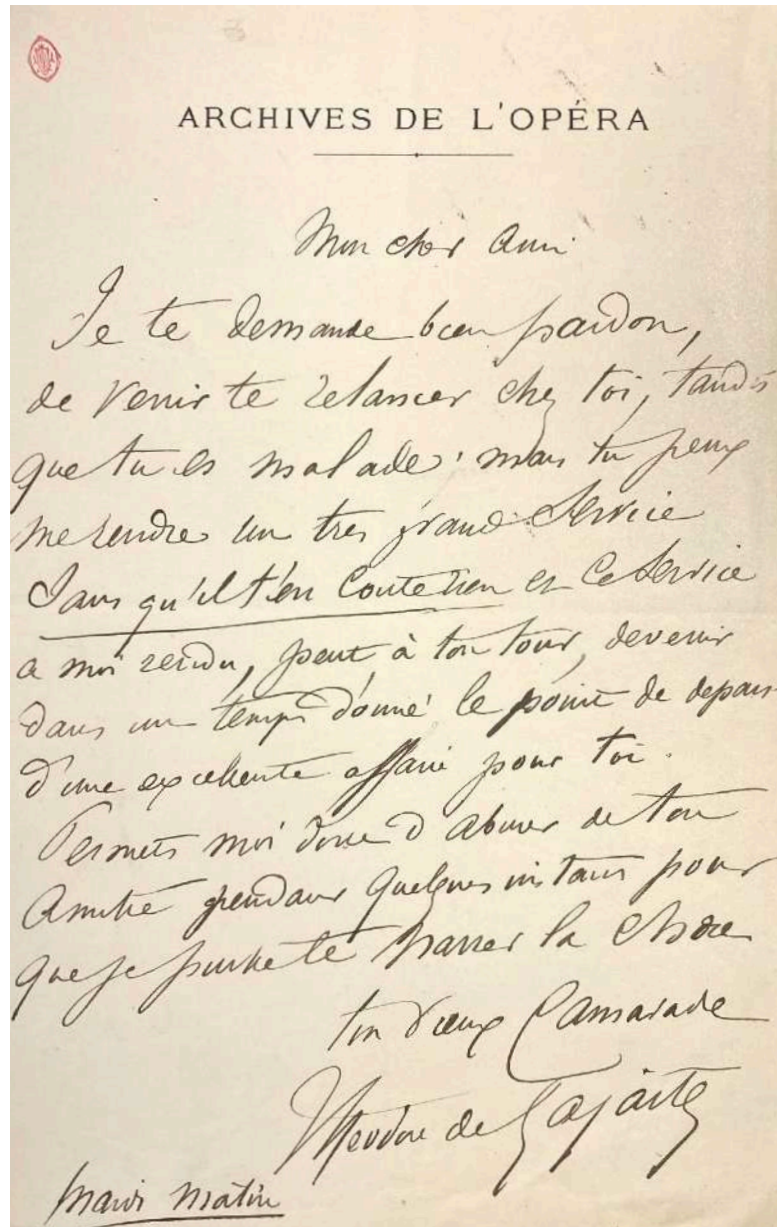 ARCHIVES DE L'OPÉRA
Mon cher Ami
Je te demande bien pardon,
de venir te relancer chez toi, tandis
que tu es malade; mais tu peux
me rendre un tres grand Service
Sans qu'il t'en Coute rien et Ce Service
a moi rendu, peut à ton tour, devenir
dans un temps donné le point de depart
d'une excellente affaire pour toi.
Permets moi donc d'abuser de ton
Amitié pendant quelques instans pour
que je puisse te narrer la Chose
ton vieux Camarade
Théodore de Lajarte
Mardi matin